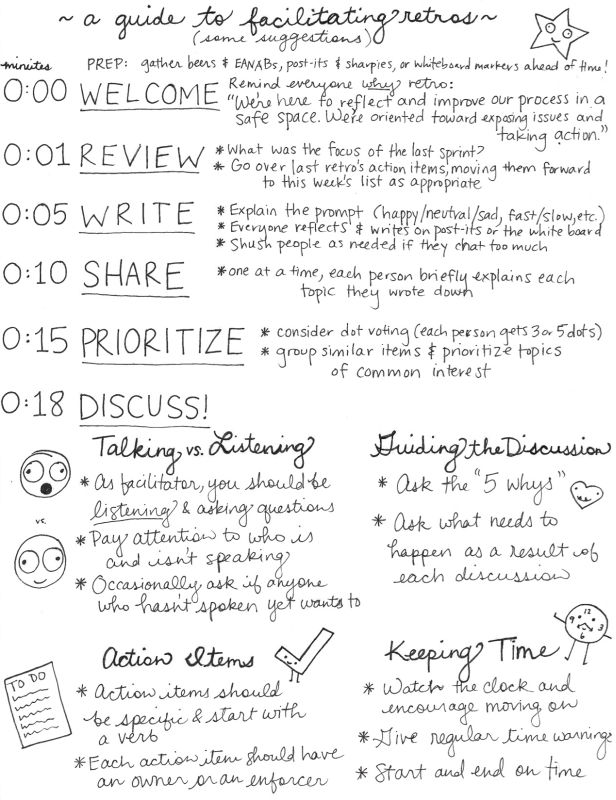 ~ a guide to facilitating retros ~
(some suggestions)
minutes
PREP: gather beers & EANABs, post-its & sharpies, or whiteboard markers ahead of time!
0:00 WELCOME
Remind everyone why retro:
"We're here to reflect and improve our process in a
safe space. We're oriented toward exposing issues and
taking action."
0:01 REVIEW
* What was the focus of the last sprint?
* Go over last retro's action items, moving them forward
to this week's list as appropriate
0:05 WRITE
* Explain the prompt (happy/neutral/sad, fast/slow, etc.)
* Everyone reflects & writes on post-its or the white board
* Shush people as needed if they chat too much
0:10 SHARE
* one at a time, each person briefly explains each
topic they wrote down
0:15 PRIORITIZE
* consider dot voting (each person gets 3 or 5 dots)
* group similar items & prioritize topics
of common interest
0:18 DISCUSS!
Talking vs. Listening
* As facilitator, you should be
listening & asking questions
vs.
* Pay attention to who is
and isn't speaking
* Occasionally ask if anyone
who hasn't spoken yet wants to
Guiding the Discussion
* Ask the "5 whys"
* Ask what needs to
happen as a result of
each discussion
Action Items
TO DO
* Action items should
be specific & start with
a verb
* Each action item should have
an owner or an enforcer
Keeping Time
12
9 3
6
* Watch the clock and
encourage moving on
* Give regular time warnings
* Start and end on time